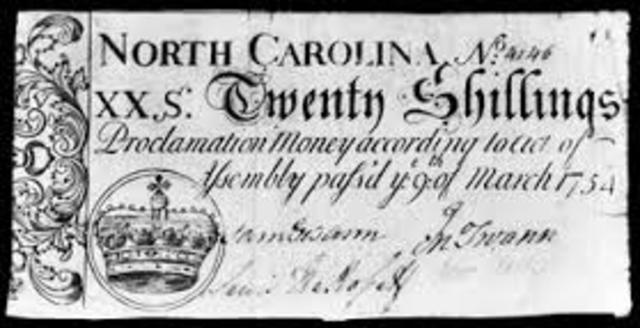 NORTH CAROLINA, No. 4146
XX,S. Twenty Shillings
Proclamation Money according to act of
Assembly pass'd ye. 9th of March 1754
Sam Swann Jn Swann
Lewis DeRosset